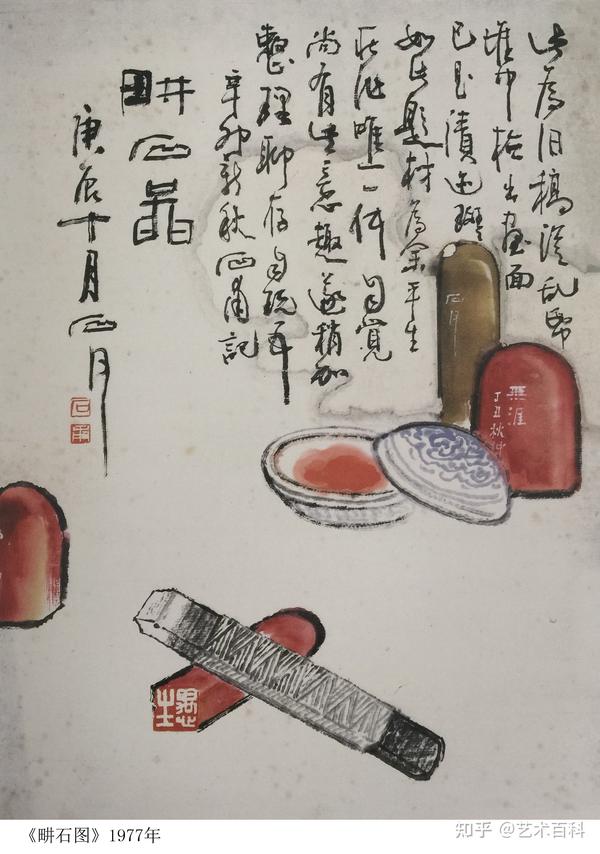 此為旧稿從乱帋
堆中捡出画面
已是漬迹斑
如此題材為余平生
所作唯一件自覚
尚有生意趣遂稍加
整理聊存自玩耳
辛卯新秋石甫記
畊石
庚辰十月石月
石月
無涯
丁丑秋
《畊石图》1977年
知乎 @艺术百科